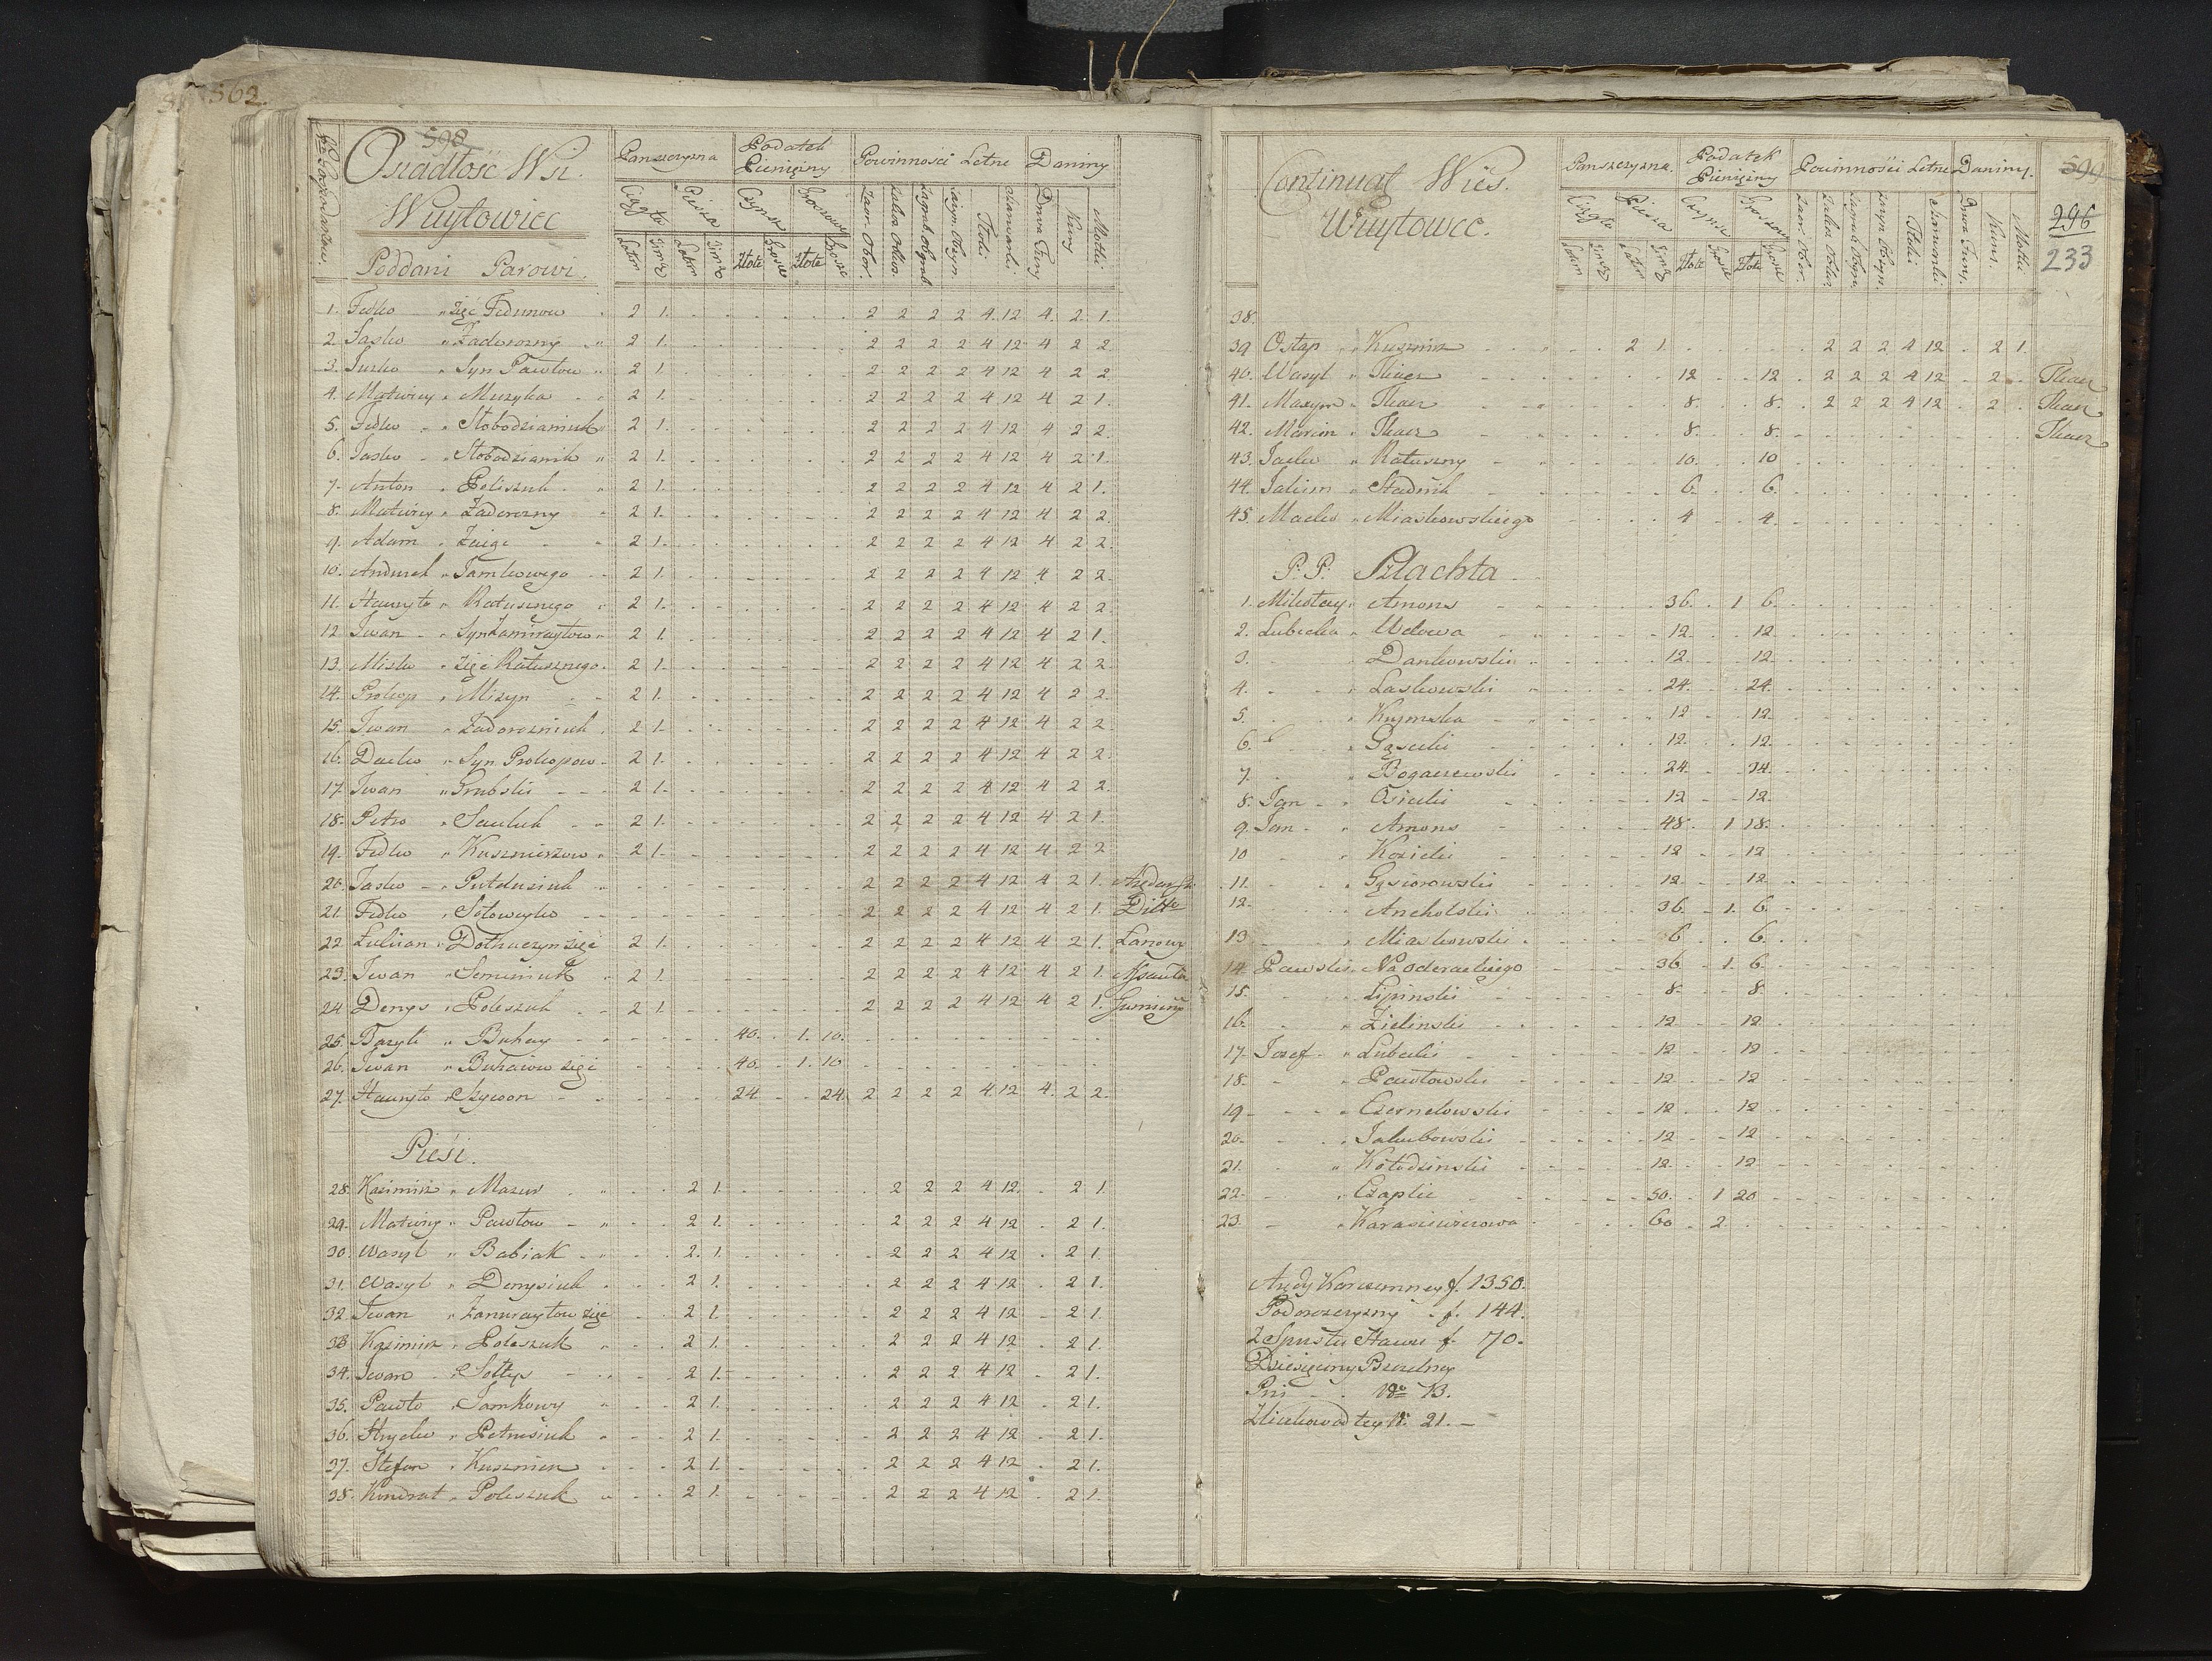 562.
598
Osiadłosc Wsi.
Wuytowiec
Poddani Parowi.
No Gospodarzow.
Panszczyzna
Podatek Pieniężny
Powinnosci Letne
Daniny
Ciągła Piesza Czynsz
Latem Zimą Latem Zimą Złote Grosze Złote Grosze
1. Fedko " zięć Fedunow " 2 1. 2 2 2 2 4 12 4. 2. 1.
2. Jasko " Zadorozny " 2 1. 2 2 2 2 4 12 4 2 2
3. Jusko " Syn Pawłow " 2 1. 2 2 2 2 4 12 4 2 2
4. Matwiey " Muzyka 2 1. 2 2 2 2 4 12 4 2 1.
5. Fedko " Słobodzianiuk 2 1. 2 2 2 2 4 12 4 2 2.
6. Jasko " Słobodzianik " 2 1. 2 2 2 2 4 12 4 2 1.
7. Anton " Poliszuk 2 1. 2 2 2 2 4 12 4 2 1.
8. Matwiey " Zadorozny 2 1. 2 2 2 2 4 12 4 2 2.
9. Adam 2 1. 2 2 2 2 4 12 4 2 2.
10. Andruch " Tamkowego 2 1. 2 2 2 2 4 12 4 2 2.
11. Hawryło " Ratusznego 2 1. 2 2 2 2 4 12 4 2 2.
12 Iwan " Syn 2 1. 2 2 2 2 4 12 4 2 1.
13. Misko " zięć Ratusznego. 2 1. 2 2 2 2 4 12 4 2 2.
14. Prokop " Mizyn 2 1. 2 2 2 2 4 12 4 2 2.
15. Iwan " Zadorozniuk 2 1. 2 2 2 2 4 12 4 2 2
16. Dacko " Syn Prokopow 2 1. 2 2 2 2 4 12 4 2 2.
17. Iwan " Grubski 2 1. 2 2 2 2 4 12 4 2 2.
18. Petro " Sawluk 2 1. 2 2 2 2 4 12 4 2 1.
19. Fedko " Kuszmierzow " 2 1. 2 2 2 2 4 12 4 2 2
20. Jasko 2 2 2 2 4 12 4 2 1.
21 Fedko " Sołoweyko 2 2 2 2 4 12 4 2 1. Ditto
22 Łukian " zięć 2 1. 2 2 2 2 4 12 4 2 1. Łanowy
23. Iwan " Semeniuk 2 1. 2 2 2 2 4 12 4 2 1.
24 Denys " Poleszuk 2 1. 2 2 2 2 4 12 4 2 1. Gumieny
25. Bazyli " Buhay 40. 1. 10.
26. Iwan " Buhaiow zięć 40. 1. 10
27. Hawryło " Szywoon 24 24. 2 2 2 2 4. 12 4. 2 2.
Pieśi.
28. Kazimirz " Mazur 2 1. 2 2 2 4 12. 2 1.
29. Matwiey " Pawłow 2 1. 2 2 2 4 12. 2 1.
30. Wasyl " Babiak 2. 1. 2 2 2 4 12 2 1.
31. Wasyl " Denysiuk 2 1. 2 2 2 4 12. 2 1.
32 Iwan " zięć 2 1. 2 2 2 4 12 2 1.
33 Kazimirz " Poleszuk 2 1. 2 2 2 4 12 2 1.
34. Iwan " Sołtys 2 1. 2 2 2 4 12 2 1.
35. Pawło " Tamkowy 2 1. 2 2 2 4 12 2 1.
36. Hrycko " Petrusiuk 2 1. 2 2 2 4 12 2 1.
37. Stefan " Kuszmierz 2 1. 2 2 2 4 12 2 1.
38. Kondrat " Poleszuk 2 1. 2 2 2 4 12 2 1.
Continuat Wieś.
Wuytowce.
Panszczyzna.
Podatek Pieniężny
Powinnośći Letne
Daniny.
599
296
233
38.
39 Ostap " Kuszmirz 2 1. 2 2 2 4 12 2 1.
40. Wasyl " Tkacz 12 12 2 2 2 4 12 2 Tkacz
41. Maxym " Tkacz 8. 8. 2 2 2 4 12 2 Tkacz
42. Marcin " Tkacz 8. 8. Tkacz
43. Jacko " Ratuszny 10. 10
44. Jakim " Stadnik 6. 6.
45. Macko " Miaskowskiego 4 4.
P. P. Szlachta
1. Mikołay " Amons 36. 1 6.
2. Lubecka " Wdowa 12. 12.
3. Dankowski 12. 12.
4. " Laskowski 24. 24.
5. " 12 12.
6. " Gąsecki 12. 12.
7. " Bogaczewski 24. 24.
8. Jan " Osiecki 12 12.
9. Jan " Amons 48. 1 18.
10 " Kozicki 12 12
11. " Gąsiorowski 12. 12.
12. Ancholski 36. 1. 6.
13 " Miaskowski 6 6.
14. 36 1. 6.
15. " Lipinski 8. 8.
16. " Zielinski 12 12.
17. Jozef " Lubecki 12 12
18. " Pawłowski 12 12.
19. " Czernelowski 12 12
20. " Jakubowski 12 12.
21. " Kołodzinski 12. 12
22. " Czaplic 50. 1 20
23. " Karasiewiczowa 60 2.
Arędy Karczemney f. 1350.
f. 144.
Z Spustu Stawu f. 70.
Dziesięciny Pszczelney
Pni No 13.
21.